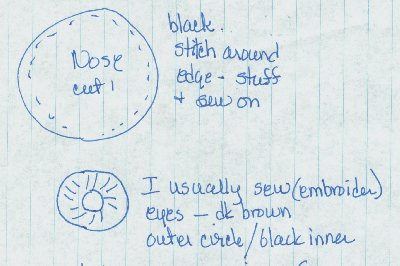 Nose
cut 1
black.
stitch around
edge - stuff
+ sew on
I usually sew (embroider)
eyes - dk brown
outer circle / black inner